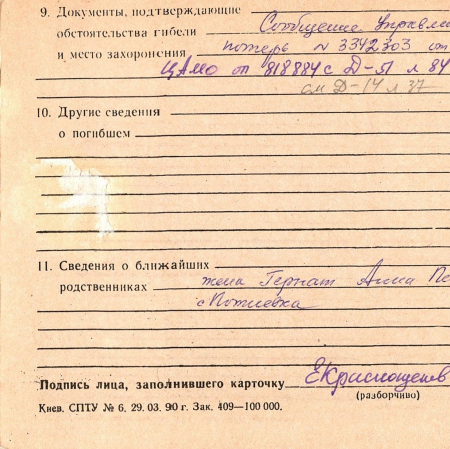 9. Документы, подтверждающие
обстоятельства гибели Сообщение Управле
и место захоронения потерь № 3342303 от
ЦАМО оп 818884с Д-51 л 84
см Д-14 л 37
10. Другие сведения
о погибшем
11. Сведения о ближайших
родственниках жена Гернат Анна Пе
с Потиевка
Подпись лица, заполнившего карточку ЕКраснощенов
(разборчиво)
Киев. СПТУ № 6. 29. 03. 90 г. Зак. 409—100 000.